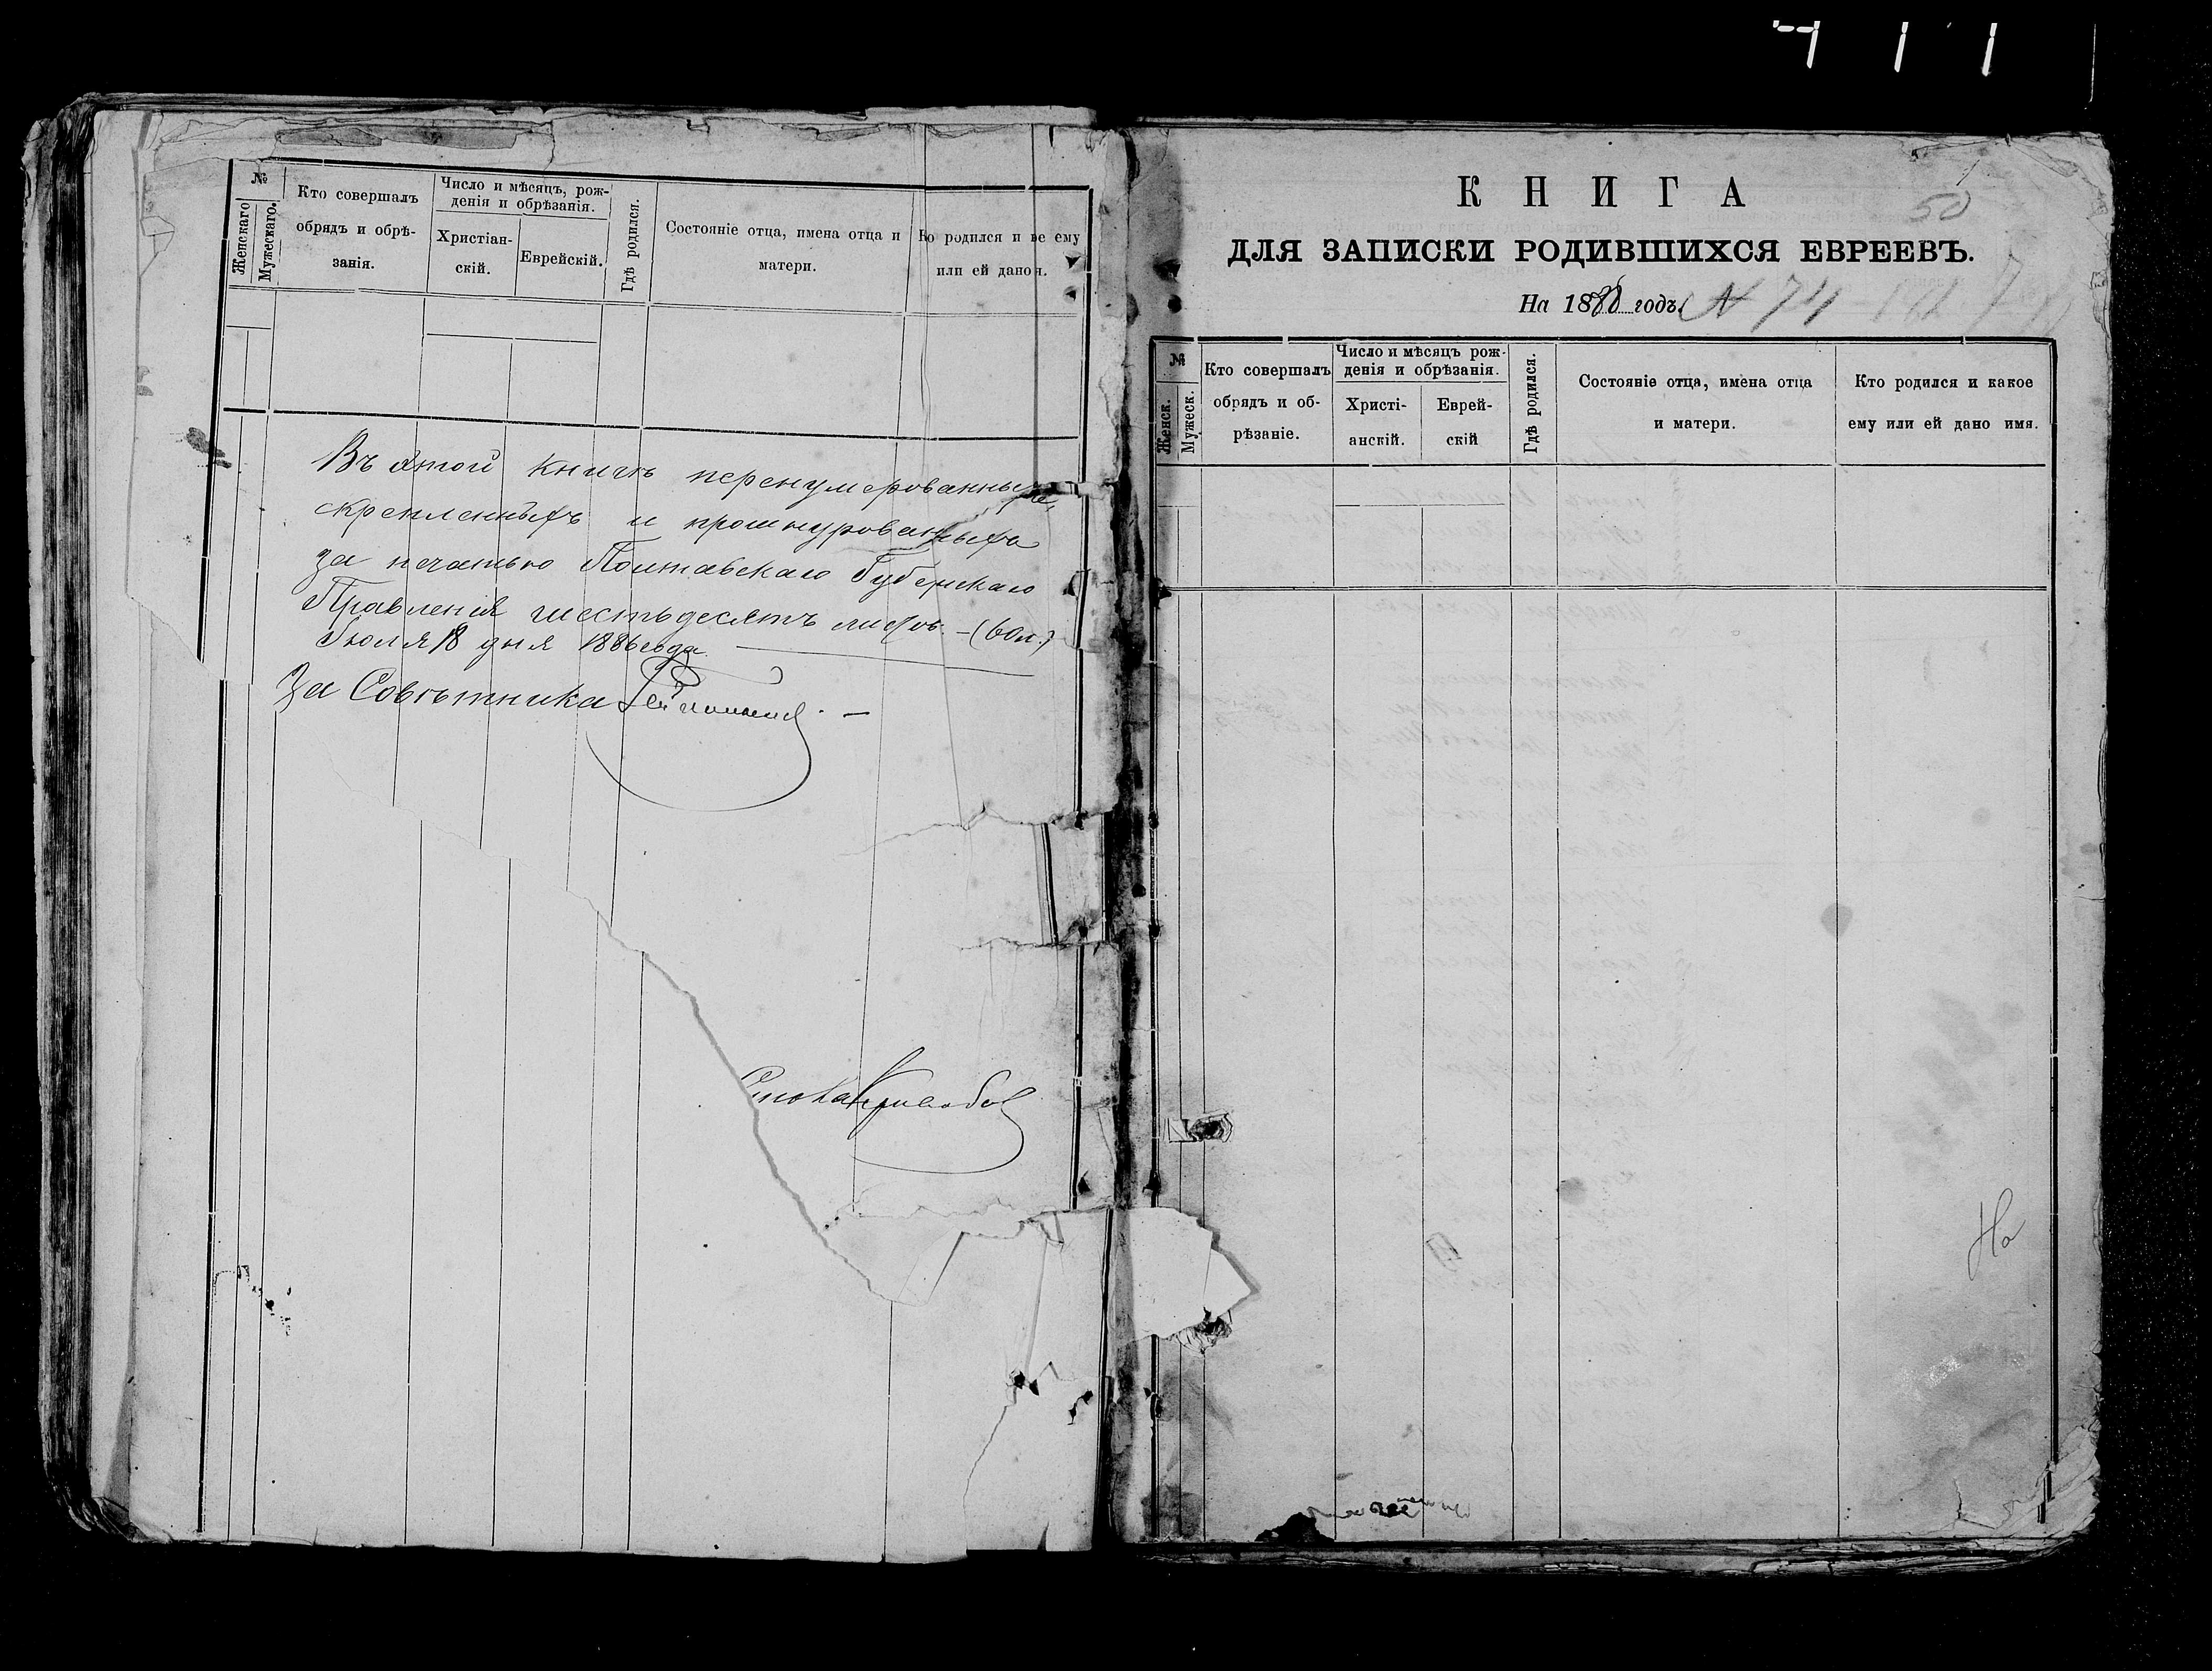 №
Женскаго
Мужескаго.
Кто совершалъ
обрядъ и обрѣ-
занія.
Число и мѣсяцъ, рож-
денія и обрѣзанія.
Христіан-
скій.
Еврейскій.
Гдѣ родился.
Состояніе отца, имена отца и
матери.
то родился и
ему
или ей дано
я.
Въ этой книгѣ перенумерованныхъ,
скрепленныхъ и прошнурованныхъ
за печатью Полтавскаго Губернскаго
Правленія шестьдесятъ листовъ. — (60 л.)
Іюля 18 дня 1886 года.
За Совѣтника
КНИГА
50
ДЛЯ ЗАПИСКИ РОДИВШИХСЯ ЕВРЕЕВЪ.
На 18 годъ. N 74
№
Женск.
Мужеск.
Кто совершалъ
обрядъ и об-
рѣзаніе.
Число и мѣсяцъ рож-
денія и обрѣзанія.
Христі-
анскій.
Еврей-
скій
Гдѣ родился.
Состояніе отца, имена отца
и матери.
Кто родился и какое
ему или ей дано имя.
На